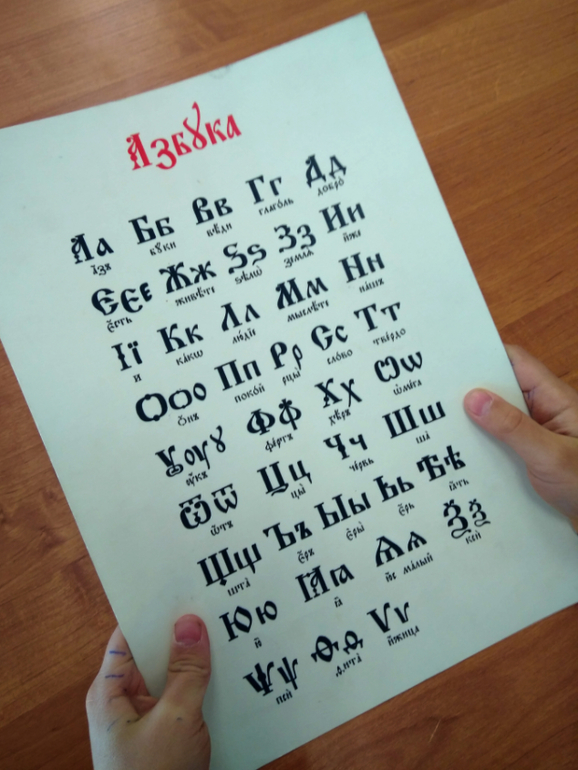 Азбꙋка
Аа Бб Вв Гг Дд
а҆́зъ бꙋ́ки вѣ́ди глаго́ль добро̀
Єєе Жж Ѕѕ Зз Ии
є҆́сть живѣ́те ѕѣлѡ̀ землѧ̀ и҆́же
Її Кк Лл Мм Нн
и ка́кѡ лю́дїе мыслѣ́те на́шъ
Ѻѻо Пп Рр Сс Тт
ѻ҆́нъ поко́й рцы̀ сло́во тве́рдо
Ꙋѹꙋ Фф Хх Ѡѡ
ѹ҆́къ фе́ртъ хѣ́ръ ѡ҆ме́га
Ѿѿ Цц Чч Шш
ѿтъ цы̀ че́рвь ша̀
Щщ Ъъ Ыы Ьь Ѣѣ
шта̀ є҆́ръ є҆ры̀ є҆́рь ꙗ҆́ть
Юю Ꙗꙗ Ѧѧ Ѯѯ
ꙗ҆ ма́лый ксѝ
Ѱѱ Ѳѳ Ѵѵ
псѝ ѳита̀ и҆́жица